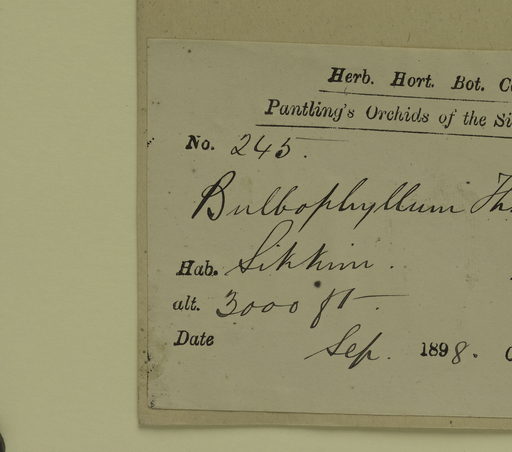 Herb. Hort. Bot.
Pantling's Orchids of the
No. 245.
Bulbophyllum
Hab. Sikkim.
alt. 3000 ft.
Date Sep. 1898.